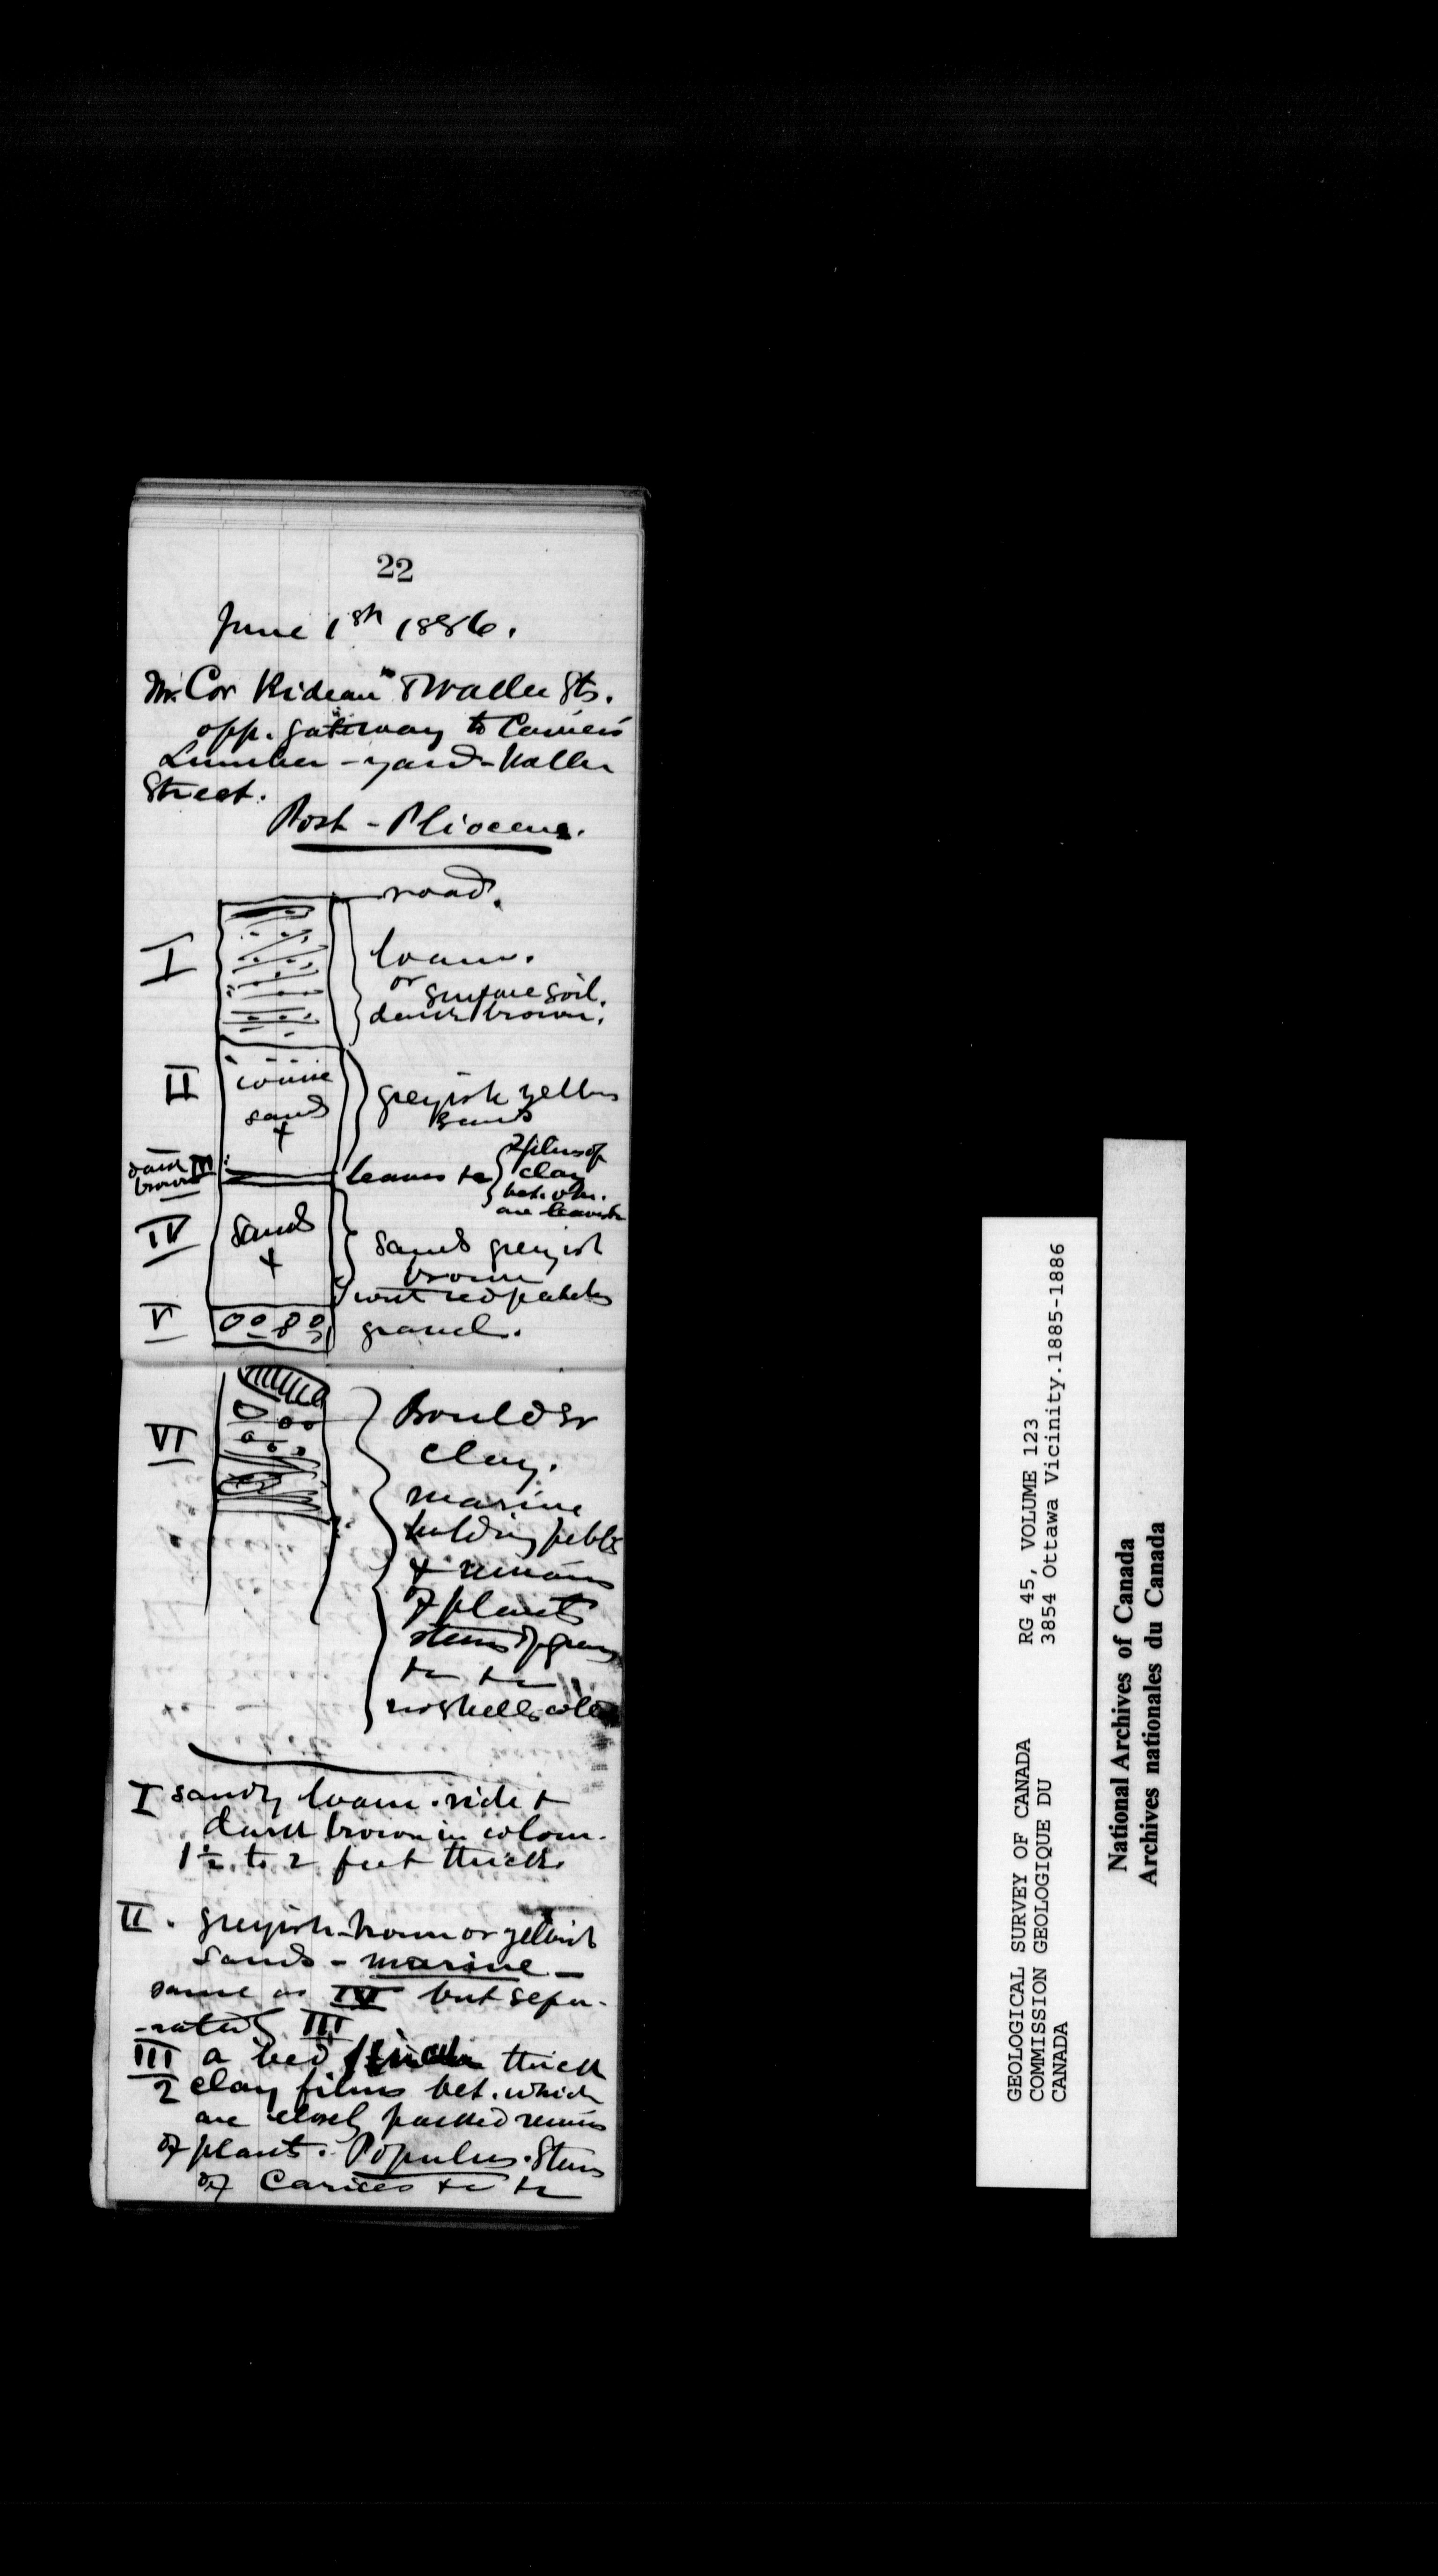 22
June 1st 1886.
Nr. Cor Rideau & Waller Sts.
opp. gateway to
Lumber-yard-Waller
Street.
Post-Pliocene.
road.
I
loam.
or
surface soil.
dark brown.
II
coarse
sand
+
greyish yellow
sands
dark
brown
III
leaves &c
2 films of
clay
bet. wh.
are leaves &c
IV
Sands
+
Sands greyish
brown
with red patches
V
gravel.
VI
Boulder
clay.
marine
holding pebbles
& remains
of plants
stems of
&c &c
no shells coll
I sandy loam. rich &
dark brown in colour.
1½ to 2 feet thick.
II. greyish-brown or yellowish
sands - marine -
same as IV but sepa-
-rated III
III a bed thick
2 clay films bet. which
are closely packed remains
of plants. Populus. Stems
of Carices &c &c
GEOLOGICAL SURVEY OF CANADA RG 45, VOLUME 123
COMMISSION GEOLOGIQUE DU 3854 Ottawa Vicinity.1885-1886
CANADA
National Archives of Canada
Archives nationales du Canada